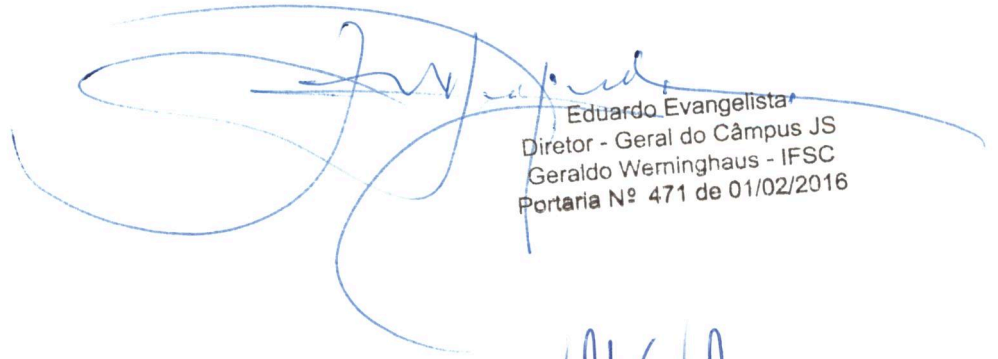 Eduardo Evangelista
Diretor - Geral do Câmpus JS
Geraldo Werninghaus - IFSC
Portaria Nº 471 de 01/02/2016